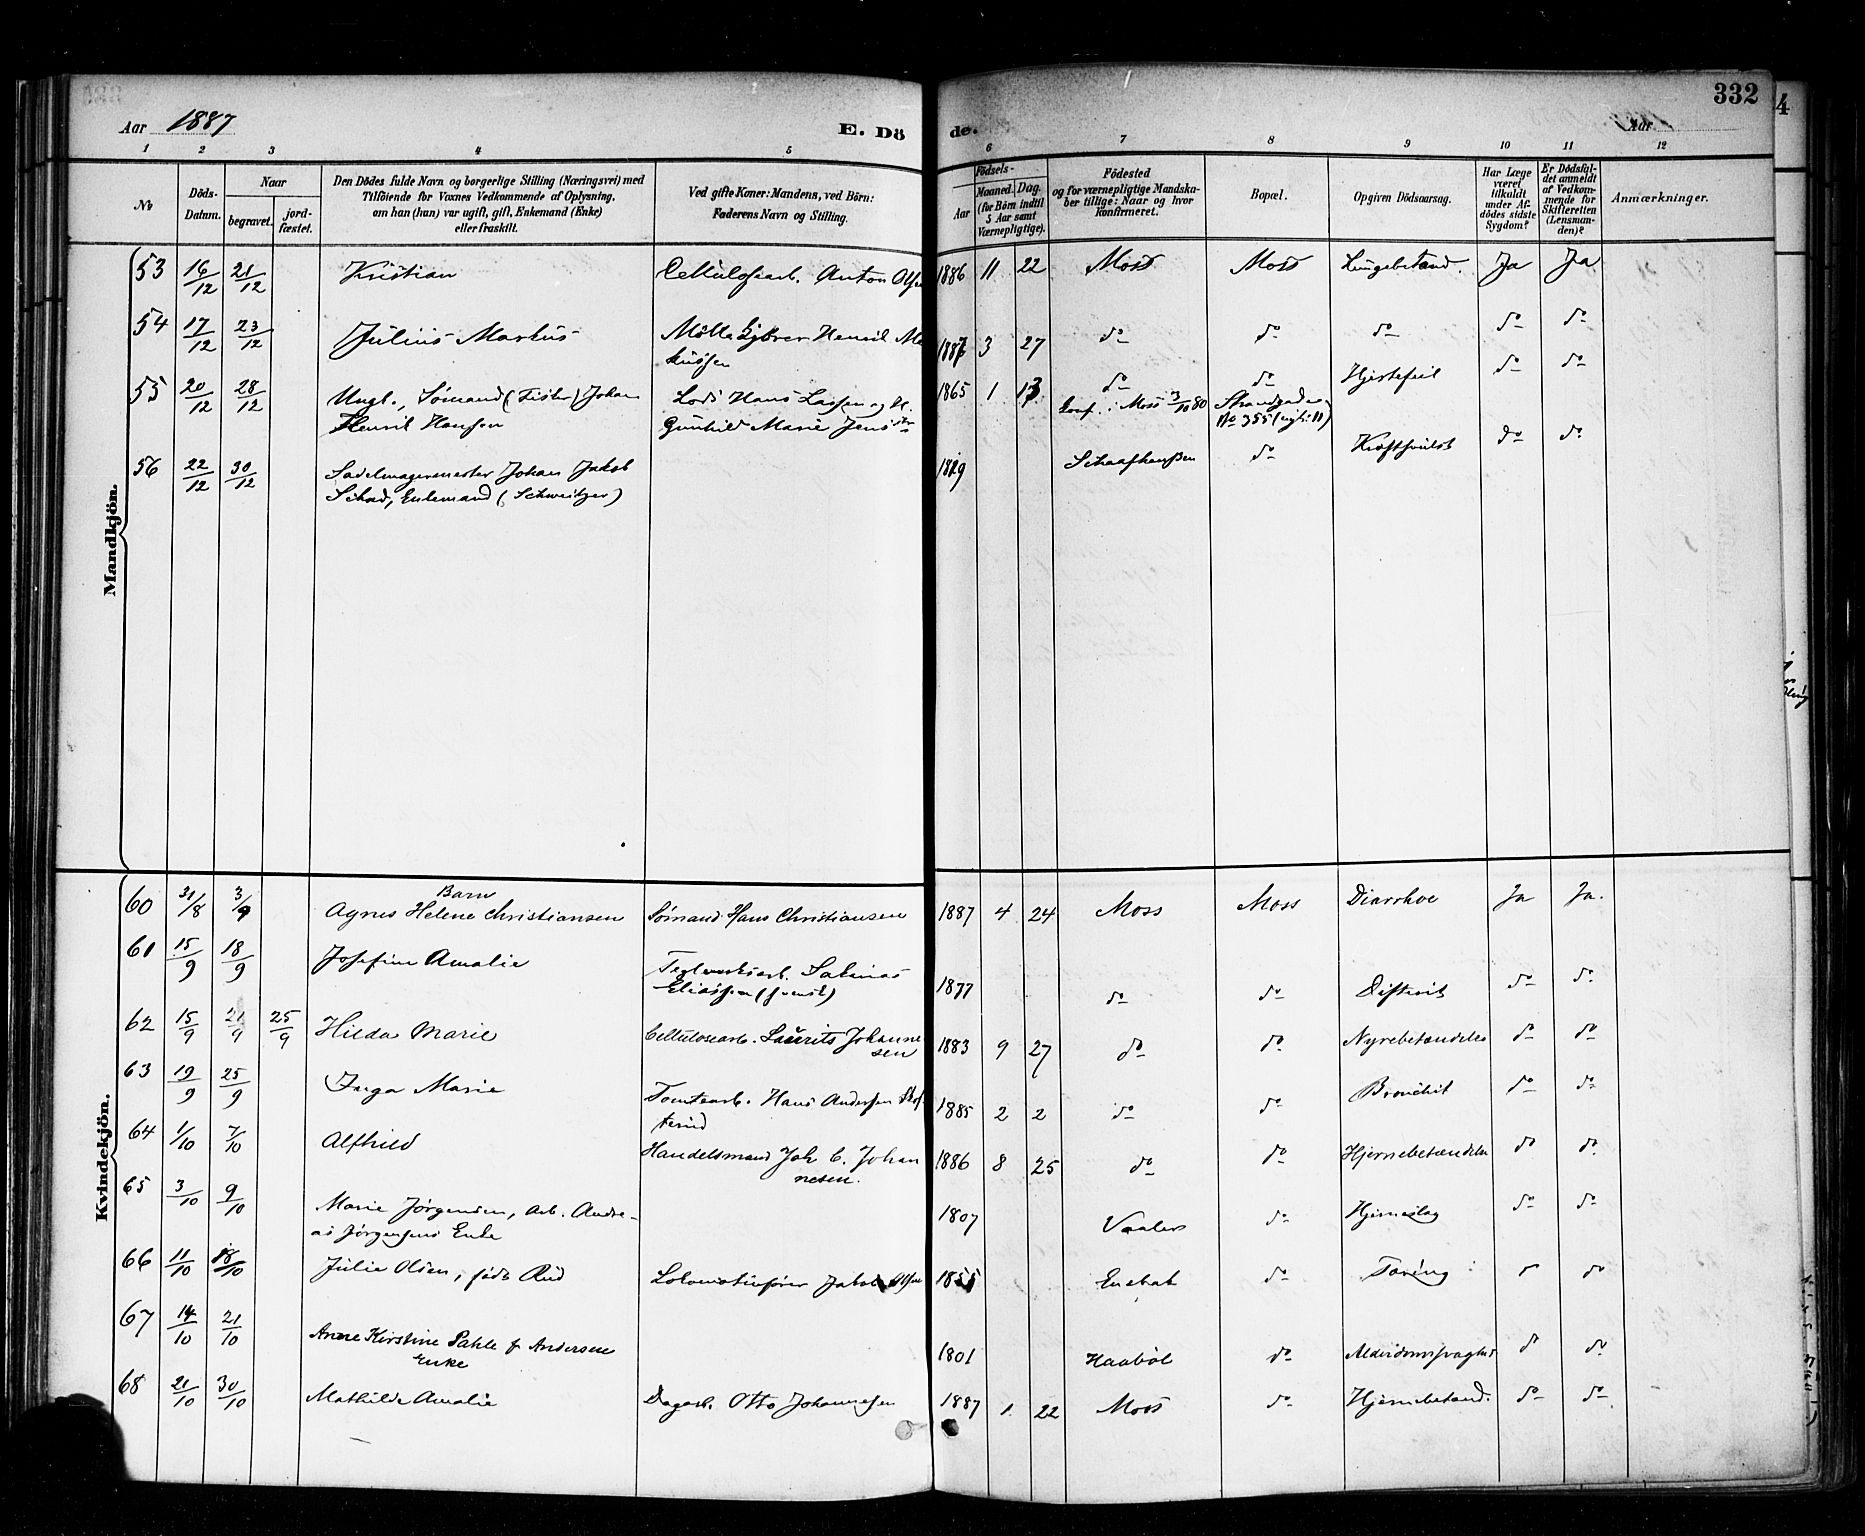 332
Aar 1887
E. Dö
de.
Aar
1 2 3 4 5 6 7 8 9 10 11 12
No
Döds-
Datum.
Naar
begravet.
jord-
fæstet.
Den Dödes fulde Navn og borgerlige Stilling (Næringsvei) med
Tilföiende for Voxnes Vedkommende af Oplysning,
om han (hun) var ugift, gift, Enkemand (Enke)
eller fraskilt.
Ved gifte Koner: Mandens, ved Börn:
Faderens Navn og Stilling.
Födsels-
Aar
Maaned. Dag.
(for Börn indtil
5 Aar samt
Værnepligtige).
Födested
og for værnepligtige Mandska-
ber tillige: Naar og hvor
konfirmeret.
Bopæl.
Opgiven Dödsaarsag.
Har Læge
været
tilkaldt
under Af-
dödes sidste
Sygdom?
Er Dödsfal-
det anmeldt
af Vedkom-
mende for
Skifteretten
(Lensman-
den)?
Anmærkninger.
Mandkjön.
53 16/12 21/12 Kristian Cellulosearb. Anton Olsen 1886 11 22 Moss Moss Lungebetænd. Ja Ja
54 17/12 23/12 Julius Markus Mølle Henrik Ma
kussen 1887 3 27 do do do do do
55 20/12 28/12 Ungk., Sømand (Fisker) Johan Lods Hans Larsen og H. 1865 1 13 do do Hjertefeil do do
Henrik Hansen Gunhild Marie Jens
Konf. i Moss 3/10 80 Strandgaden
No 355
56 22/12 30/12 Sadelmagermester Johan Jakob 1819 Schaafhaußen do Kræftsvulst do do
Schad, Enkemand (Schweitzer)
Kvindekjön.
60 31/8 3/9 Barn
Agnes Helene Christiansen Sømand Hans Christiansen 1887 4 24 Moss Moss Diarrhoe Ja Ja.
61 15/9 18/9 Josefine Amalie Teglverksarb. Salinas
Eliassen (svensk) 1877 do do Difterit do do
62 15/9 21/9 25/9 Hilda Marie Cellulosearb. Laurits Johanne
sen 1883 9 27 do do Nyrebetændelse do do
63 19/9 25/9 Inga Marie Tomtearb. Hans Andersen
1885 2 2 do do Bronchit do do
64 1/10 7/10 Alfhild Handelsmand Joh C. Johan
nesen. 1886 8 25 do do Hjernebetændelse do do
65 3/10 9/10 Marie Jørgensen, Arb. Andre-
as Jørgensens Enke 1807 Vaaler do Hjerneslag do do
66 11/10 18/10 Julie Olsen, født Rud Lokomotivfører Jakob Olsen 1855 Enebak do Tæring do do
67 14/10 21/10 Anne Kirstine Pahle f Andersen
Enke 1801 Haabøl do Alderdomssvaghed do do
68 21/10 30/10 Mathilde Amalie Dagarb. Otto Johannesen 1887 1 22 Moss do Hjernebetænd. do do